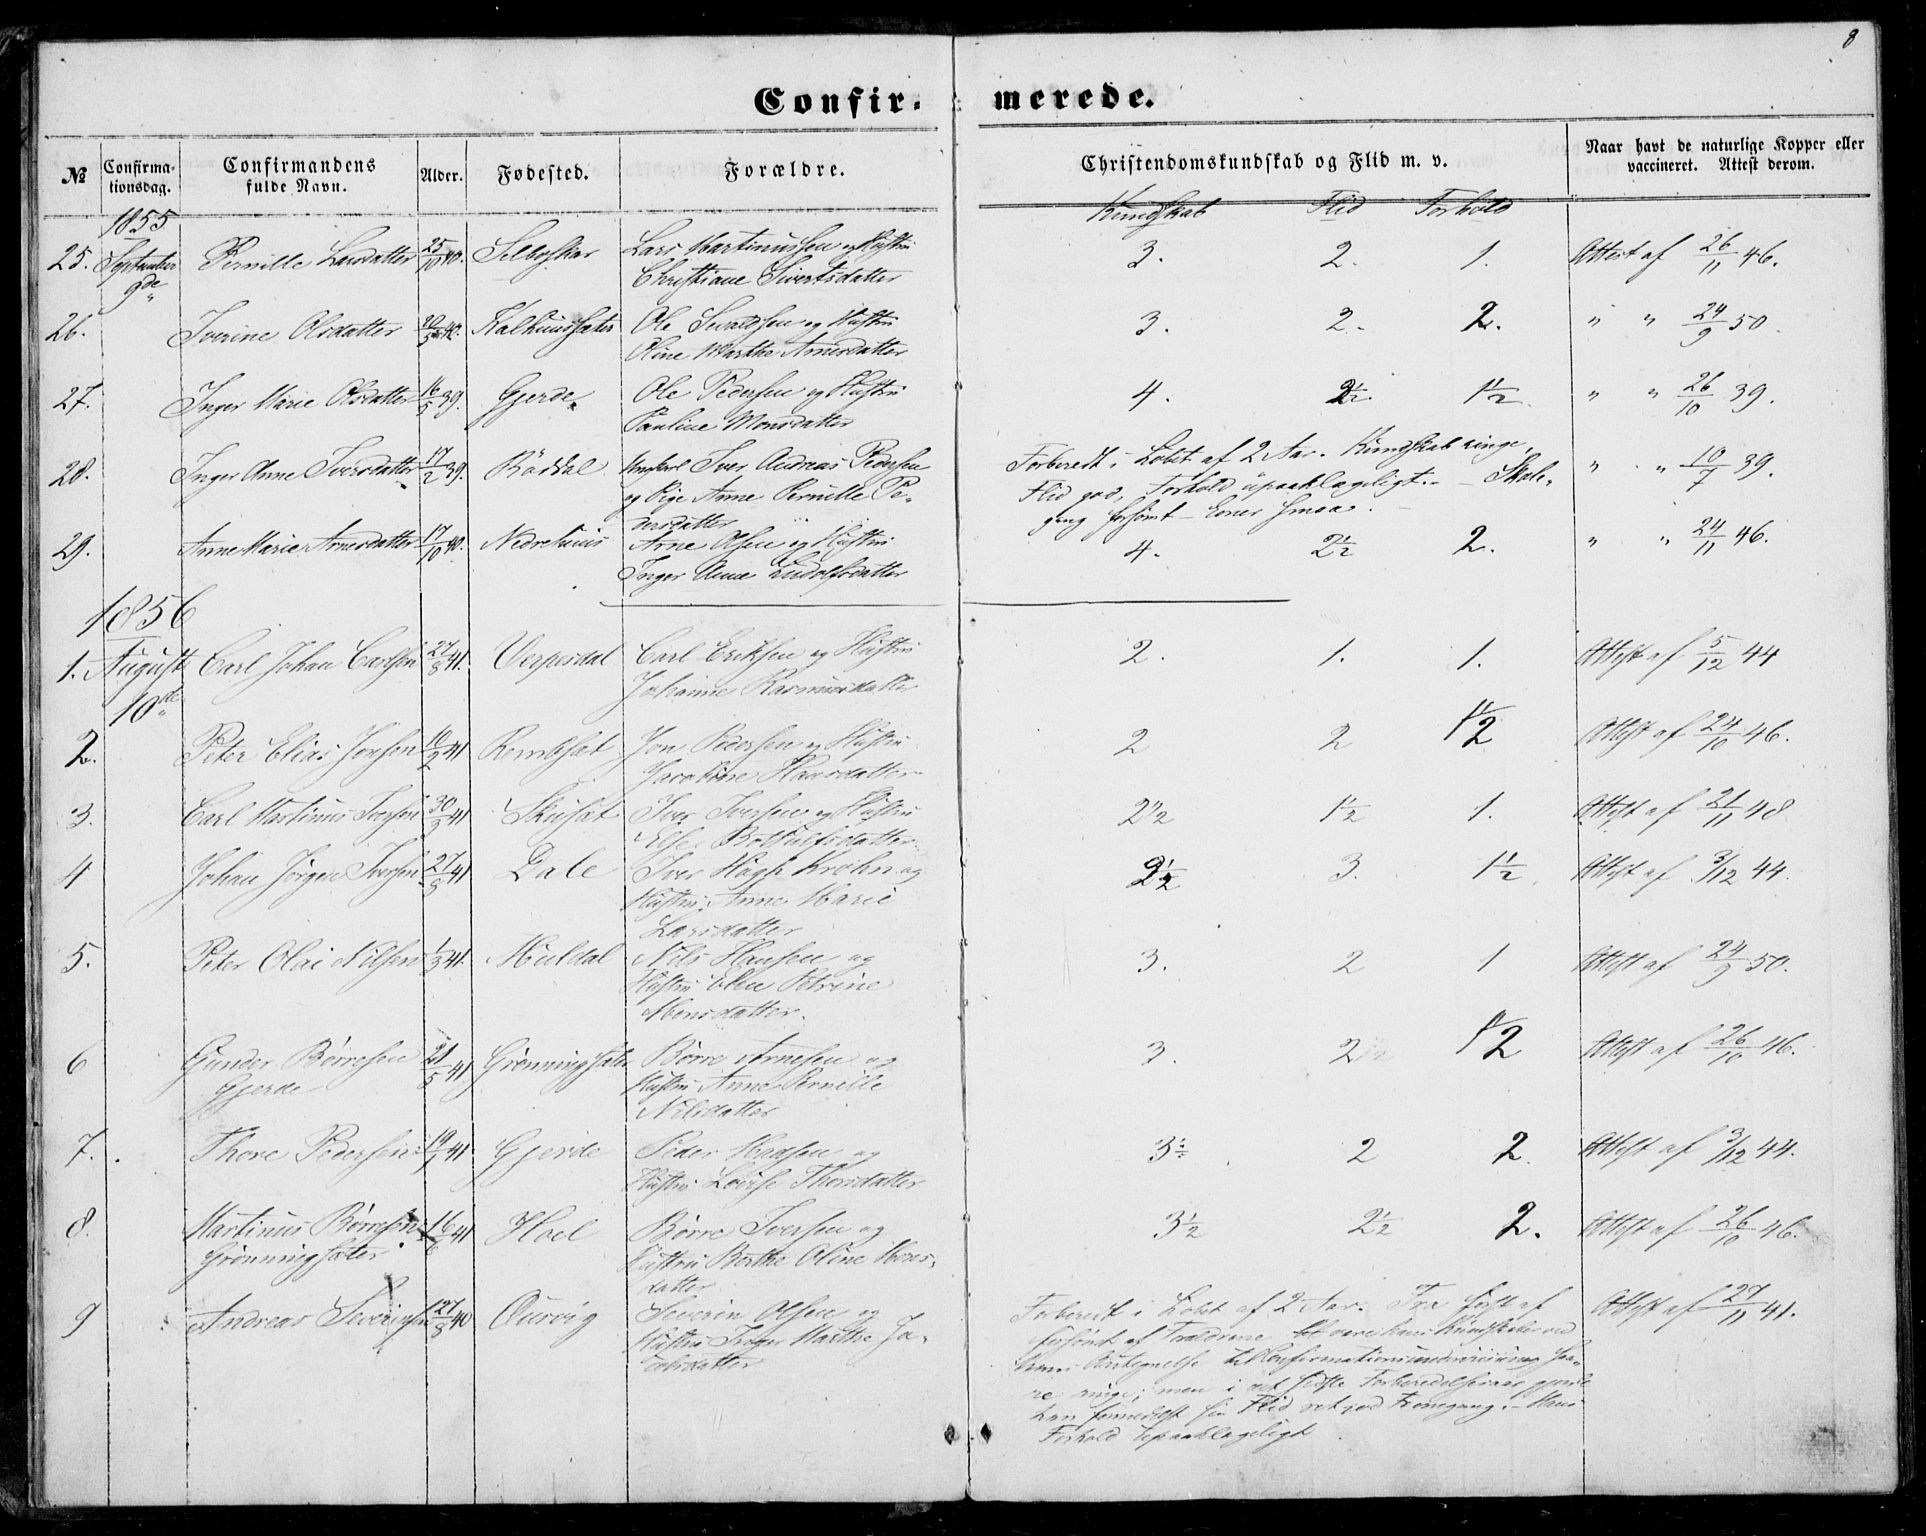 8
Confirmerede.
№ Confirmationsdag. Confirmandens fulde Navn. Alder. Fødested. Forældre. Christendomskundskab og Flid m. v. Naar havt de naturlige Kopper eller vaccineret. Attest derom.
1855 Kundskab Flid Forhold
25. September 9de Pernille Larsdatter 25/10 40. Selboskar Lars Martinussen og Hustru 3. 2. 1. Attest af 26/11 46.
Christiane Sivertsdatter
26. Iverine Olsdatter 40. Kalhussæter Ole Sevaldsen og Hustru 3. 2. 2. " " 24/9 50.
Oline Marthe Arnesdatter
27. Inger Marie Olsdatter 16/5 39. Gjerde Ole Pedersen og Hustru 4. 2½. 1½. " " 26/10 39.
Pauline Monsdatter
28. Inger Anne Iversdatter 17/2 39. Röddal Ungkarl Iver Andreas Pedersen Forberedt i Löbet af 2 Aar. Kundskab ringe, " " 10/7 39.
og Pige Anne Pernille Pe- Flid god, Forhold upaaklageligt. - Skole-
dersdatter gang forsömt -
29. Anne Marie Arnesdatter 17/10 40. Nedrehuus Arne Olsen og Hustru 4. 2½ 2. " " 24/11 46.
Inger Anne Ludolfsdatter
1856
1. August 10de Carl Johan Carlsen 27/8 41. Verpesdal Carl Eriksen og Hustru 2. 1. 1. Attest af 5/12 44
Johanne Rasmusdatter
2. Peter Elias Jonsen 10/2 41 Remksæt Jon Pedersen og Hustru 2 2 1½ Attest af 24/10 46.
Jacobine Hansdatter
3. Carl Martinus Iversen 30/3 41 Skusæt Iver Iversen og Hustru 2½ 1½ 1. Attest af 21/11 48
Else Bothulfsdatter
4 Johan Jörgen Iversen 27/3 41 Dale Iver Høgh Krohn og 2½ 3. 1½. Attest af 3/12 44.
Hustru Anne Marie
Larsdatter
5. Peter Olai Nilsen 1/3 41. Muldal Nils Hansen og 3. 2 1 Attest af 24/9 50.
Hustru Elen Petrine
Monsdatter.
6 Gunder Börresen 21/5 41 Grönningsæter Börre Arnesen og 3. 2½ 1½ Attest af 26/10 46.
Gjerde Hustru Anne Pernille
Nilsdatter
7. Thore Pedersen 19/1 41 Gjerde Peder Madsen og 3½ 2 2. Attest af 3/12 44.
Hustru Louise Thorsdatter
8. Martinus Börresen 16/6 41 Hoel Börre Iversen og 3½ 2½ 2. Attest af 26/10 46.
Grönningsæter Hustru Berthe Oline Mons-
datter
9 Andreas Severinsen 27/8 40 Ourvig Severin Olsen og Forberedt i Löbet af 2 Aar. Fra först af Attest af 27/11 41.
Hustru Inger Marthe Ja- forsömt af Forældrene vare hans Kundskaber ved
cobsdatter hans Antegnelse til Konfirmationsundervisning saa-
re ringe; men i det sidste Forberedelsesaar gjorde
han formedelst sin Flid ret god Fremgang. - Hans
Forhold upaaklageligt